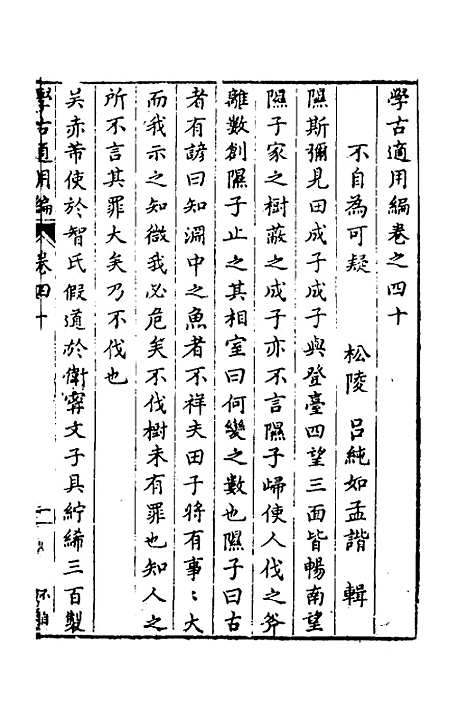 學古適用編卷之四十
不自為可疑　松陵　呂純如孟諧　輯
隰斯彌見田成子成子與登臺四望三面皆暢南望
隰子家之樹蔽之成子亦不言隰子歸使人伐之斧
離數創隰子止之其相室曰何變之數也隰子曰古
者有諺曰知淵中之魚者不祥夫田子將有事：大
而我示之知微我必危矣不伐樹未有罪也知人之
所不言其罪大矣乃不伐也
吴赤芾使於智氏假道於衛甯文子具紵絺三百製
學古適用編　卷四十　一